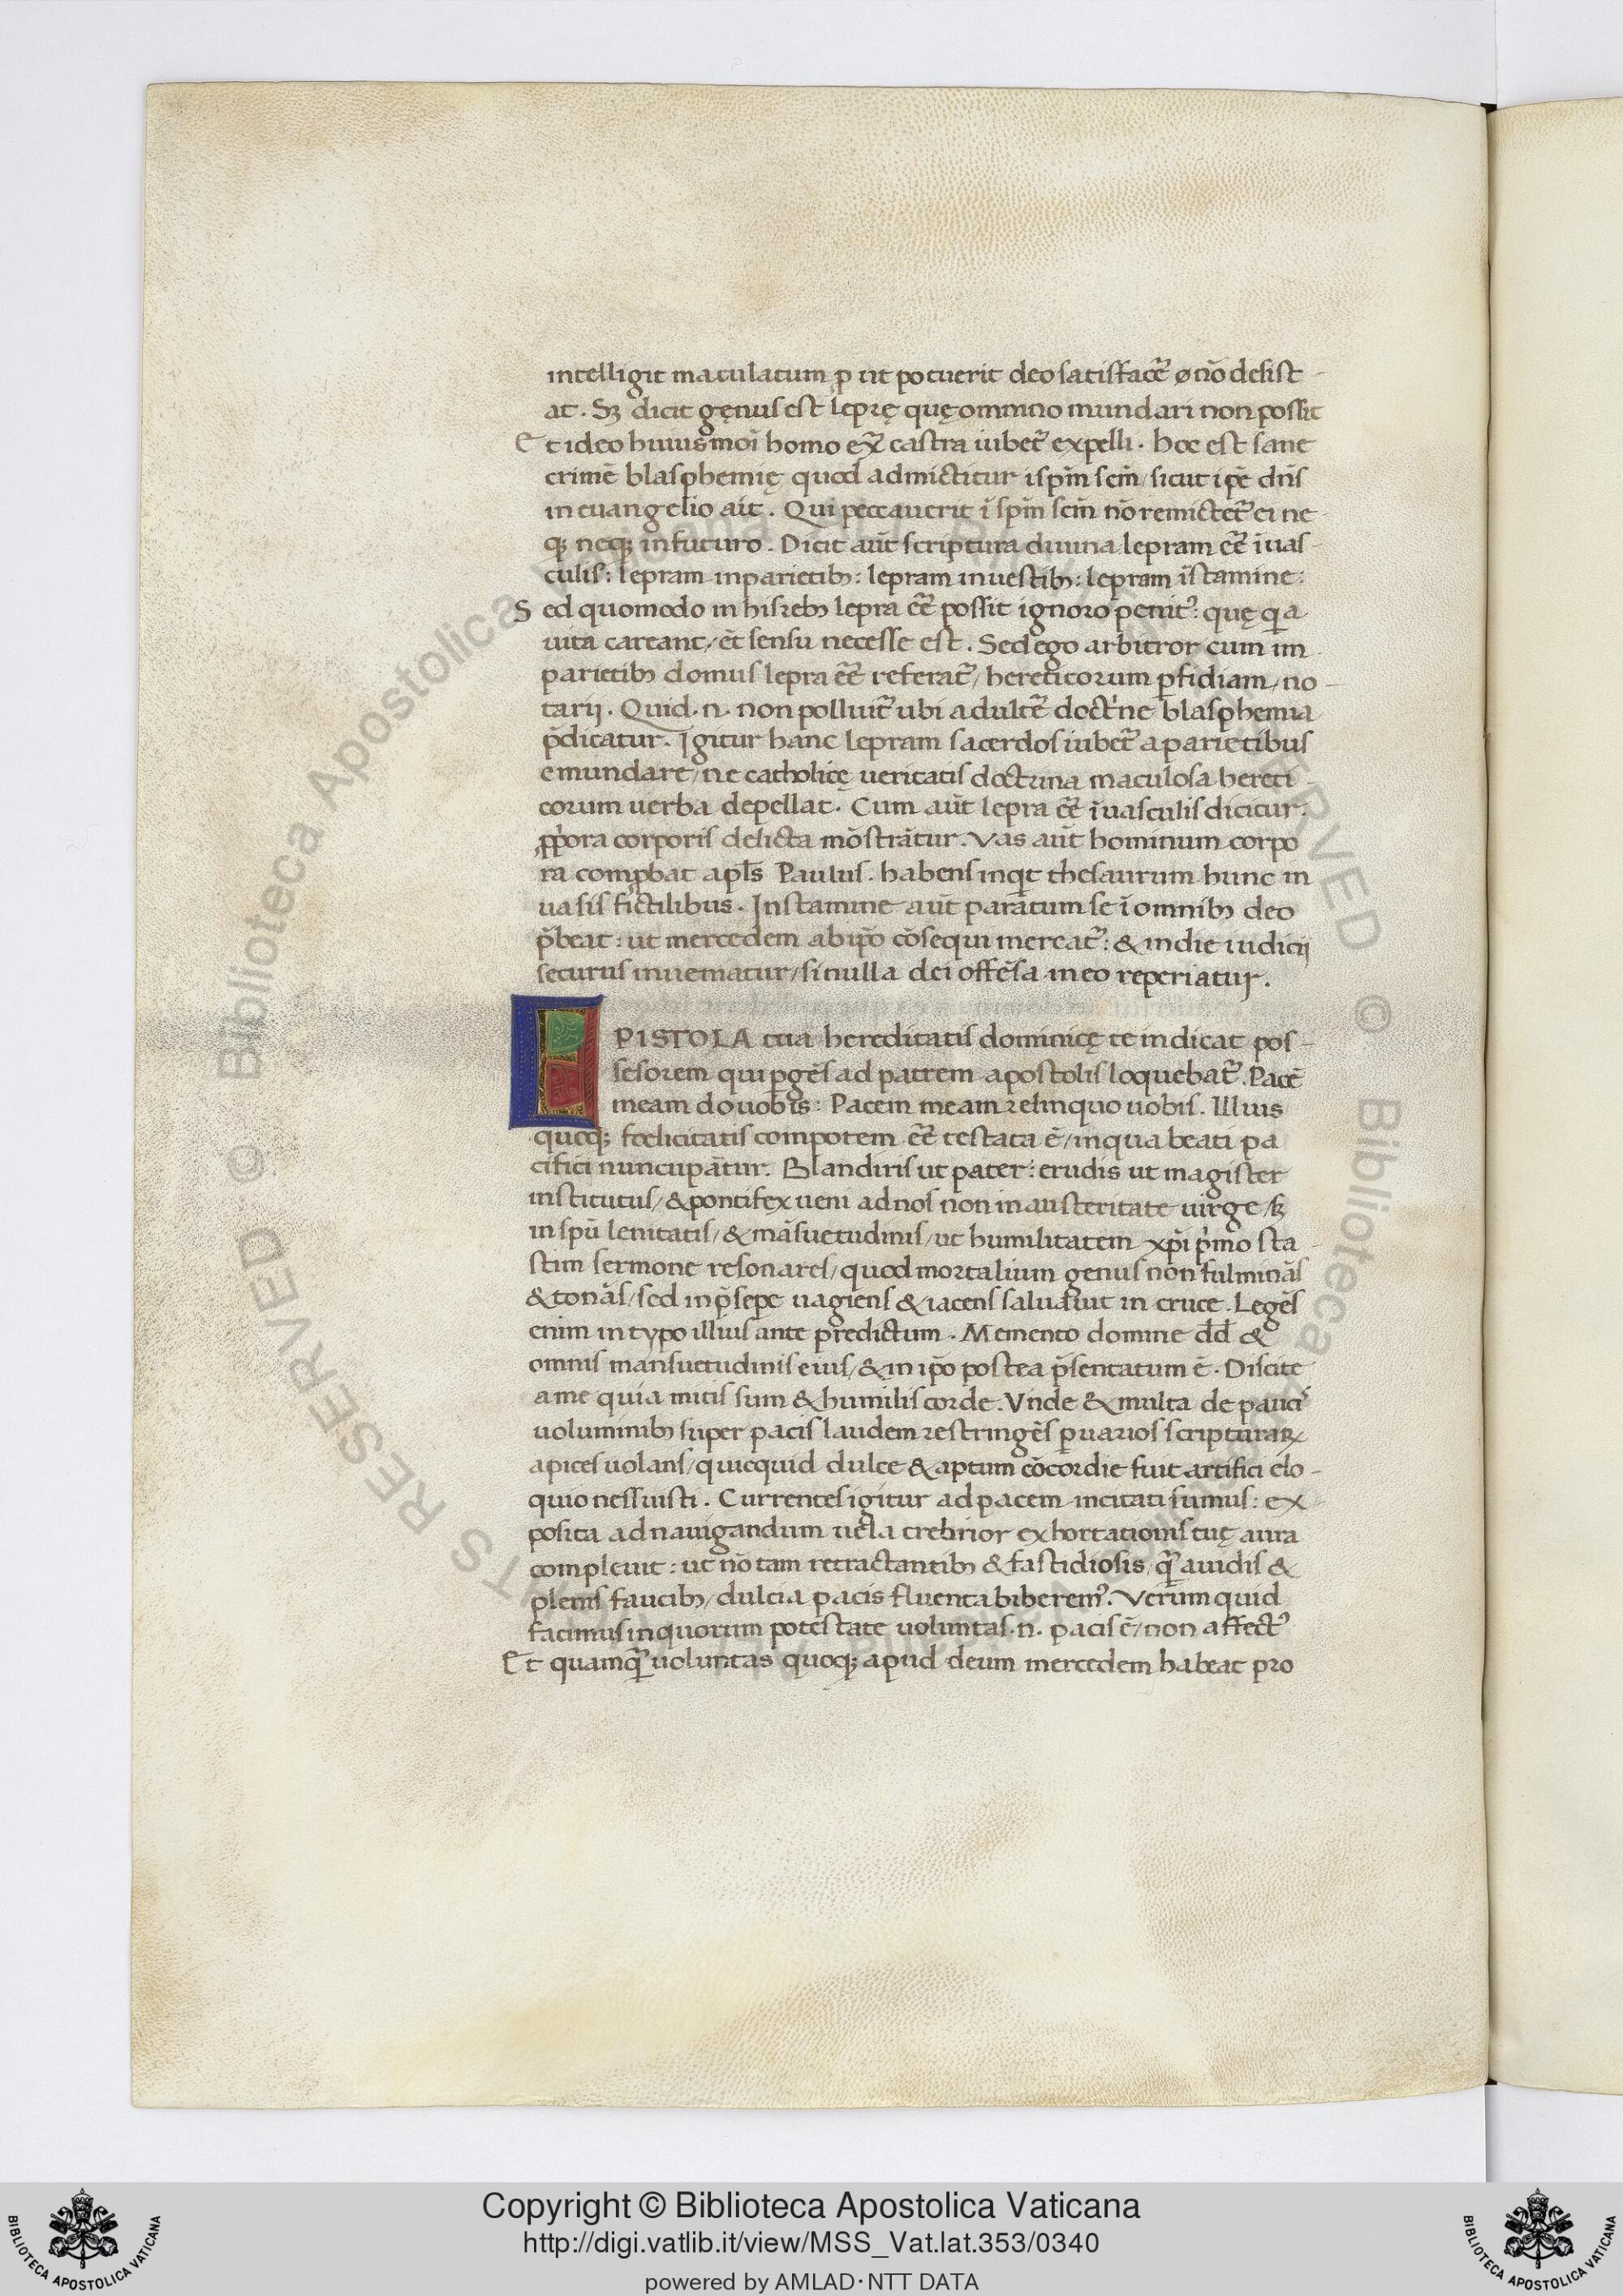 intelligit maculatum ꝓ ut potuerit deo satisfacẽ ꝙ nõ desist-
at. Sꝫ dicit gęnus est leprę quę omnino mundari non possit
Et ideo huiusmoi homo ex̃ castra iubet̃ expelli. hoc est sane
crimẽ blasphemię quod admictitur i sp̃m scm̃/ sicut ip̃e dñs
in euangelio ait. Qui peccauerit ĩ sp̃m scm̃ nõ remictet̃ ei ne
qꝫ neqꝫ in futuro. Dicit aũt scriptura diuina lepram eẽ ĩ uas-
culis: lepram in parietibꝫ: lepram in uestibꝫ: lepram ĩ stamine:
Sed quomodo in his rebꝫ lepra eẽ possit ignoro penitꝰ: quę qa
uita careant/ et̃ sensu necesse est. Sed ego arbitror cum in
parietibꝫ domus lepra eẽ referat̃/ hereticorum ꝑfidiam/ no-
tarij. Quid .n. non polluit̃ ubi adulterẽ doctⁱne blasphemia
p̃dicatur. Igitur hanc lepram sacerdos iubet̃ a parietibus
emundare/ ne catholicę ueritatis doctrina maculosa hereti-
corum uerba depellat. Cum aũt lepra eẽ ĩ uasculis dicitur:
ꝓpⁱora corporis delicta mõstrãtur. Vas aũt hominum corpo
ra comꝓbat apl̃s Paulus. habens inqt thesaurum hunc in
uasis fictilibus. In stamine aũt paratum se ĩ omnibꝫ deo
p̃beat: ut mercedem ab ip̃o cõsequi mereat̃: & in die iudicij
securus inueniatur/ si nulla dei offẽsa in eo reperiatur.
EPISTOLA tua hereditatis dominicę te indicat pos-
sesorem qui ꝑgẽs ad patrem apostolis loquebat̃. Pacẽ
meam do uobis: Pacem meam relinquo uobis. Illius
quoqꝫ foelicitatis compotem eẽ testata ẽ/ in qua beati pa
cifici nuncupãtur. Blandiris ut pater: erudis ut magister
institutus/ & pontifex ueni ad nos non in austeritate uirge/ sꝫ
in spũ lenitatis/ & mãsuetudinis/ ut humilitatem xp̃i pⁱmo sta-
stim sermone resonares/ quod mortalium genus non fulminãs
& tonãs/ sed in p̃sepe uagiens & iacens saluauit in cruce. Legẽs
enim in typo illius ante predictum. Memento domine dd̃ &
omnis mansuetudinis eius/ & in ip̃o postea p̃sentatum ẽ. Discite
a me quia mitis sum & humilis corde. Vnde & multa de pauciˢ
uoluminibꝫ super pacis laudem restringẽs ꝑ uarios scripturaꝝ
apices uolans/ quicquid dulce & aptum cõcordie fuit artifici elo-
quio nessuisti. Currentes igitur ad pacem incitati sumus: ex
posita ad nauigandum uela crebrior exhortationis tuę aura
compleuit: ut nõ tam retractantibꝫ & fastidiosis/ q̃ auidis &
plenis faucibꝫ/ dulcia pacis fluenta biberemꝰ. Verum quid
facimus in quorum potestate uoluntas .n. pacis ẽ/ non affectꝰ
Et quamq̃ uoluntas quoqꝫ apud deum mercedem habeat pro
Copyright © Biblioteca Apostolica Vaticana
http://digi.vatlib.it/view/MSS_Vat.lat.353/0340
powered by AMLAD·NTT DATA